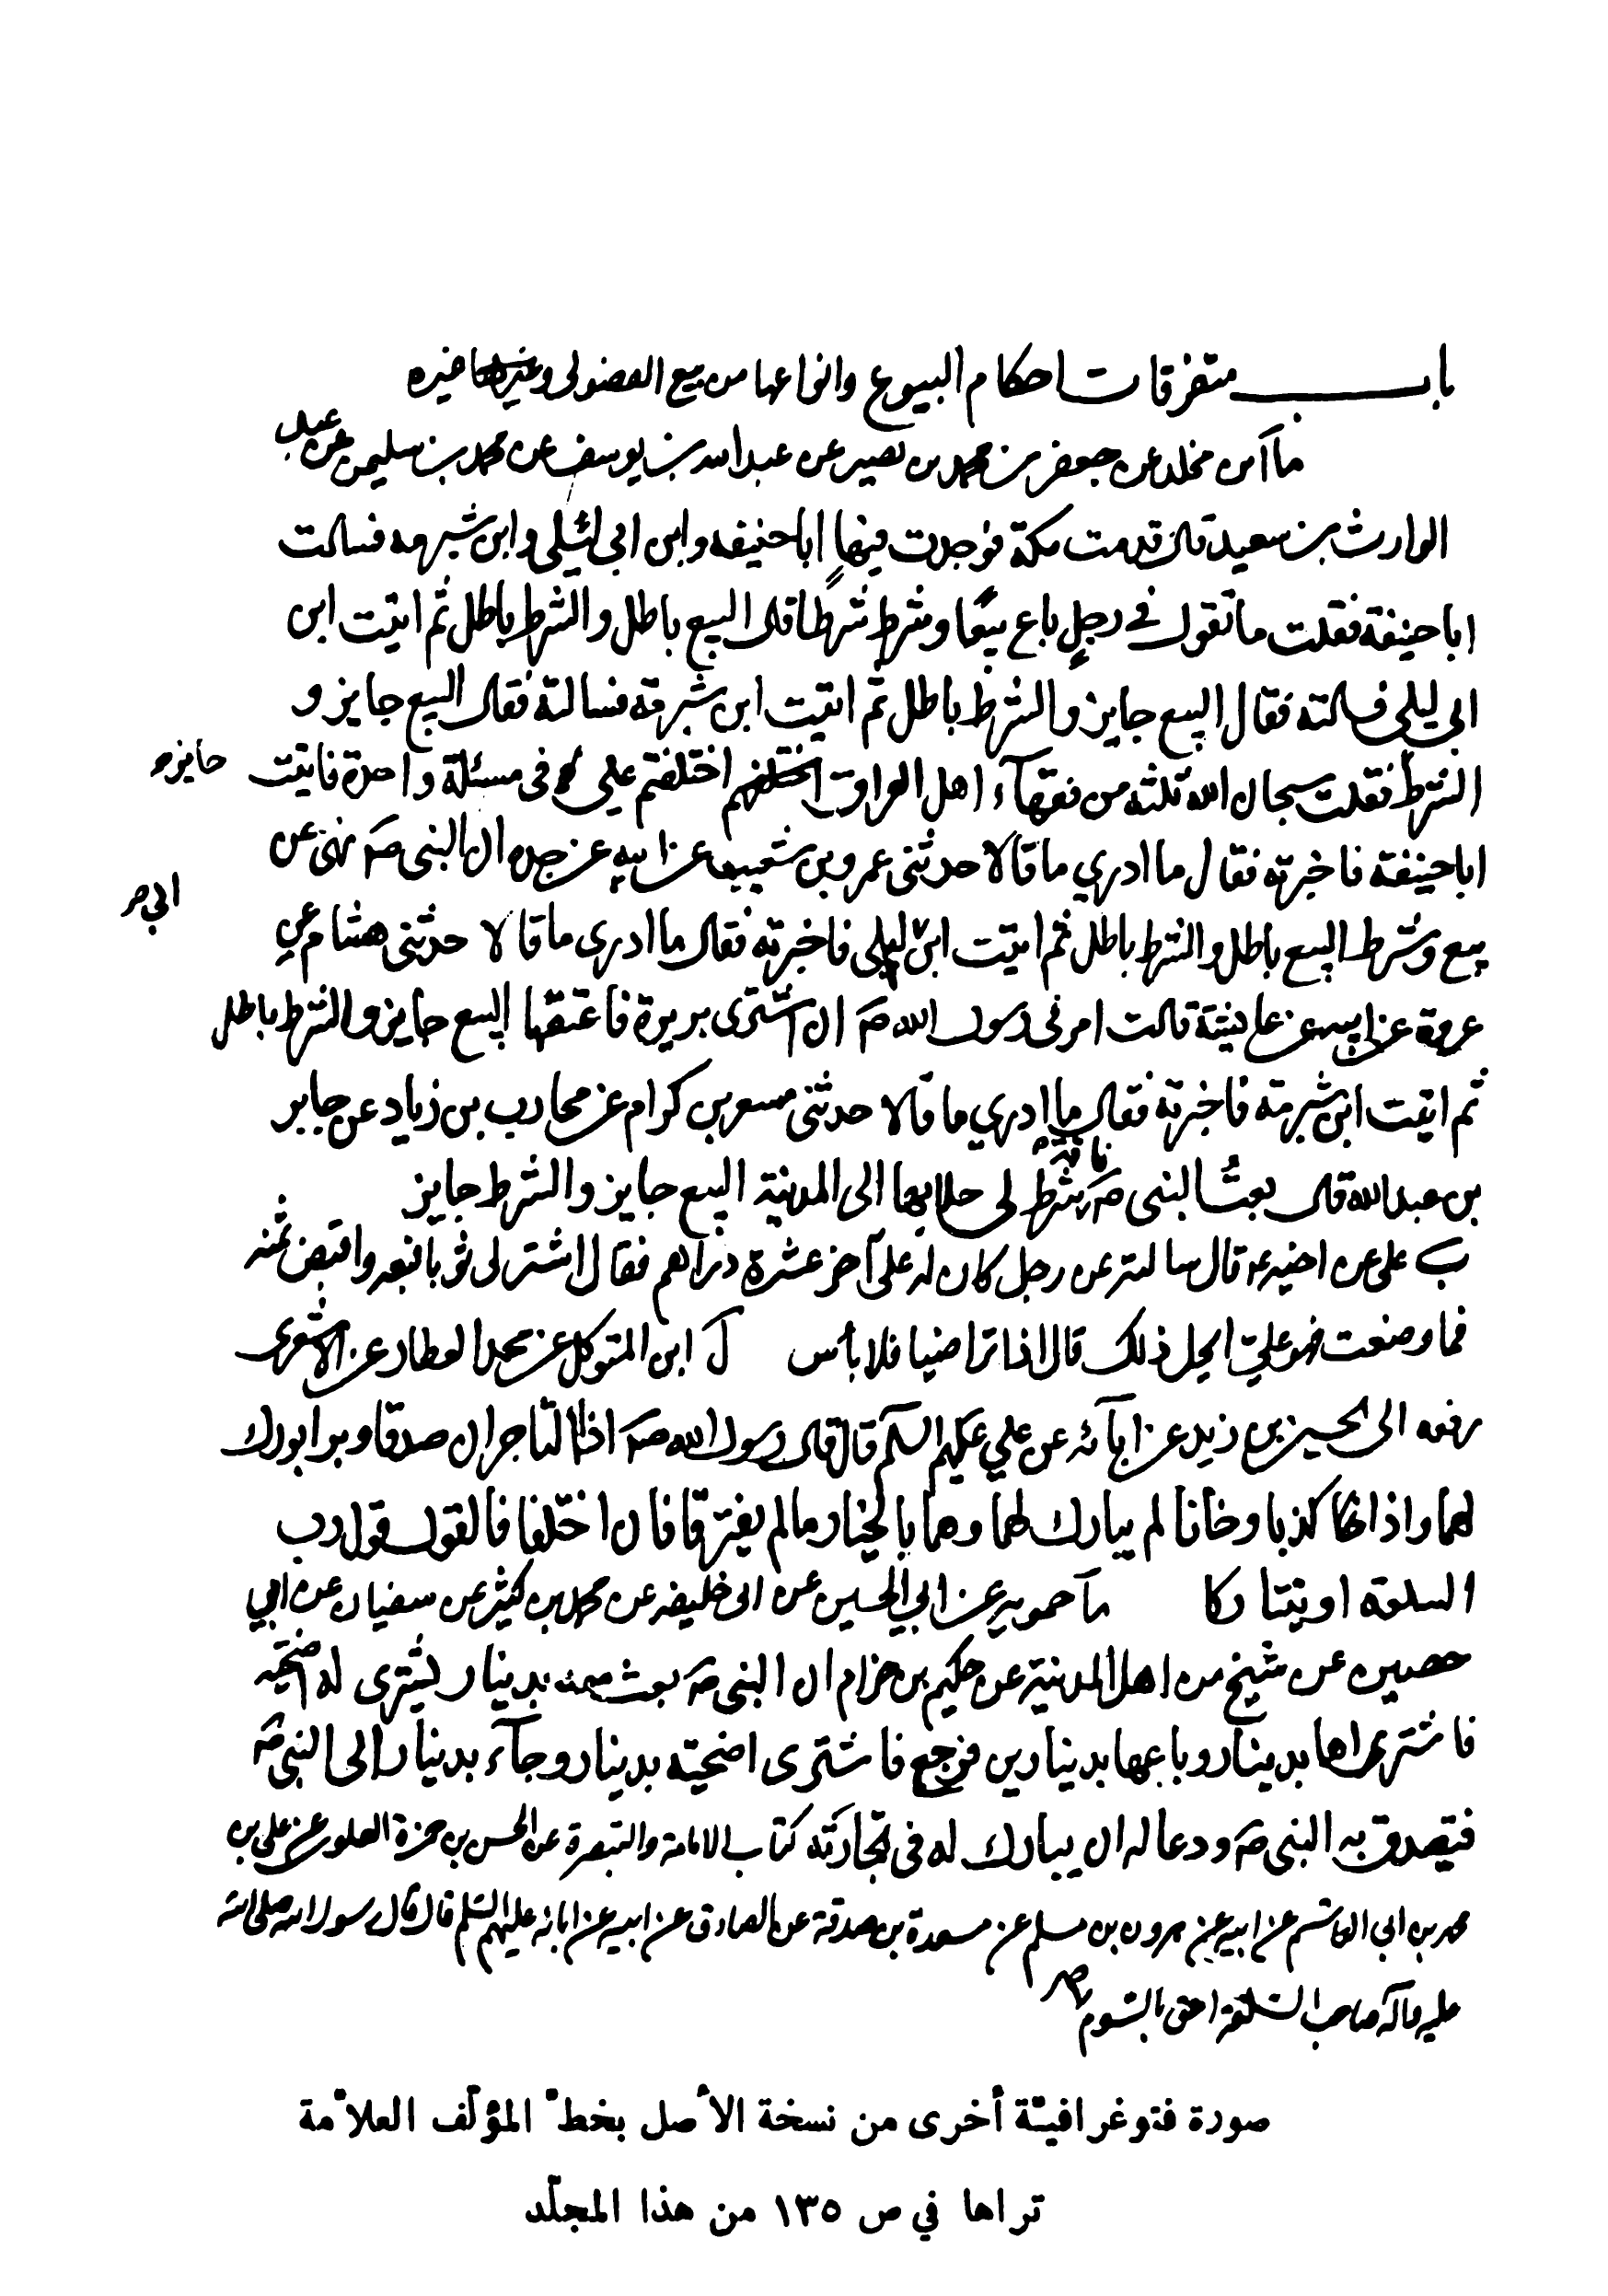 باب متفرقات احكام البيوع وانواعها من بيع الفضولى وغيره
ما ابن مخلد عن جعفر بن محمد بن نصير عن عبد الله بن يوسف عن محمد بن سليمن عن عبد
الوارث بن سعيد قال قدمت مكة فوجدت فيها ابا حنيفه وابن ابى ليلى وابن شبرمه فسالت
ابا حنيفة فقلت ما تقول في رجلٍ باع بيعًا وشرط شرطًا قال البيع باطل والشرط باطل ثم اتيت ابن
ابى ليلى فسالته فقال البيع جايز والشرط باطل ثم اتيت ابن شبرمه فسالته فقال البيع جايز و
الشرط فقلت سبحان الله ثلثه من فقهآء اهل العراق اختلفتم على فى مسئلة واحدة فاتيت
جايز
ابا حنيفة فاخبرته فقال ما ادري ما قالا حدثنى عمرو بن شعيب عن ابيه عن جده ان النبى ص نهى عن
بيع وشرط البيع باطل والشرط باطل ثم اتيت ابن ليلى فاخبرته فقال ما ادرى ما قالا حدثنى هشام بن
ابي
عروة عن ابيه عن عايشة قالت امرنى رسول الله ص ان اشترى بريرة فاعتقها البيع جايز والشرط باطل
ثم اتيت ابن شبرمة فاخبرته فقال ما ادري ما قالا حدثنى مسعر بن كرام عن محارب بن زياد عن جابر
بن عبد الله قال بعت النبى ص ناقة بشرط لى حلابها الى المدينة البيع جايز والشرط جايز
ب على عن اخيه ع قال سالته عن رجل كان له على آخر عشرة دراهم فقال اشتر لى ثوبا فبعه واقبض ثمنه
فما وضعت فهو علىّ ايحل ذلك قال اذا تراضيا فلا بأس ل ابن المتوكل عن محمد العطار عن الاشعرى
رفعه الى الحسين بن زيد عن آبآئه عن علي عليهم السلم قال قال رسول الله ص اذا التاجران صدقا وبرا بورك
لهما واذا كذبا وخانا لم يبارك لهما وهما بالخيار ما لم يفترقا فان اختلفا فالقول قول رب
السلعه او يتتاركا ما حمويه عن ابي الحسين عن ابى خليفه عن محمد بن كثير عن سفيان عن ابي
حصين عن شيخ من اهل المدينة عن حكيم بن حزام ان النبى ص بعث معه بدينار يشترى له اضحيه
فاشتراها بدينار وباعها بدينارين فرجع فاشترى اضحيته بدينار وجآء بدينار الى النبى ص
فتصدق به النبى ص ودعا له ان يبارك له فى تجارته كتاب الامامة والتبصرة عن الحسن بن حمزة العلوى عن على بن
محمد بن ابي القاسم عن ابيه عن هرون بن مسلم عن مسعدة بن صدقة عن الصادق عن ابيه عن ابائه عليهم السّلم قال قال رسول الله صلى الله
عليه وآله صاحب السّلعة احق بالسّوم
صورة فتوغرافيّة أخرى من نسخة الأصل بخطّ المؤلّف العلاّمة
تراها في ص ١٣٥ من هذا المجلّد